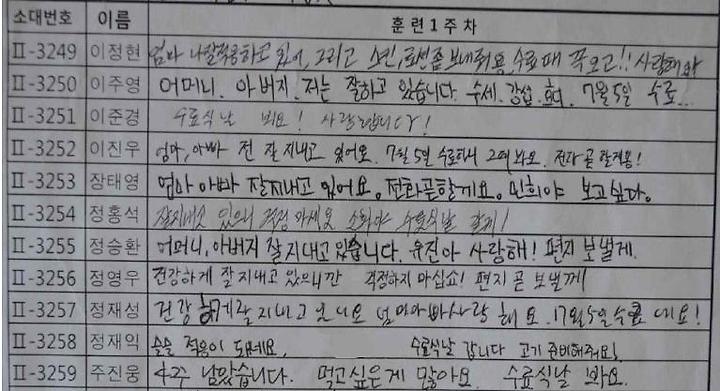 소대번호 이름 훈련1주차
Ⅱ-3249 이정현 엄마 나 잘적응하고 있어, 그리고 스킨, 로션좀 보내줘용 수료때 꼭오고!! 사랑해
Ⅱ-3250 이주영 어머니. 아버지. 저는 잘하고 있습니다. 7월 5일 수료...
Ⅱ-3251 이준경 수료식날 봬요! 사랑합니다!
Ⅱ-3252 이진우 엄마, 아빠 전 잘 지내고 있어요. 7월 5일 수료하니 그때 봐요. 전화 곧 할게용!
Ⅱ-3253 장태영 엄마 아빠 잘지내고 있어요. 전화곧할게요. 민희야 보고싶다.
Ⅱ-3254 정홍석 잘지내고 있으니 걱정 마세요 수료식날
Ⅱ-3255 정승환 어머니, 아버지 잘 지내고 있습니다. 유진아 사랑해! 편지 보낼게.
Ⅱ-3256 정영우 건강하게 잘 지내고 있으니깐 걱정하지 마십쇼! 편지 곧 보낼께!
Ⅱ-3257 정재성 건강하게잘지내고 엄마아빠사랑해요. 7월5일 수료
Ⅱ-3258 정재익 슬슬 적응이 되네요, 수료식날 갑니다 고기 준비해줘요!,
Ⅱ-3259 주진웅 4주 남았습니다. 먹고싶은게 많아요 수료식날 봐요.